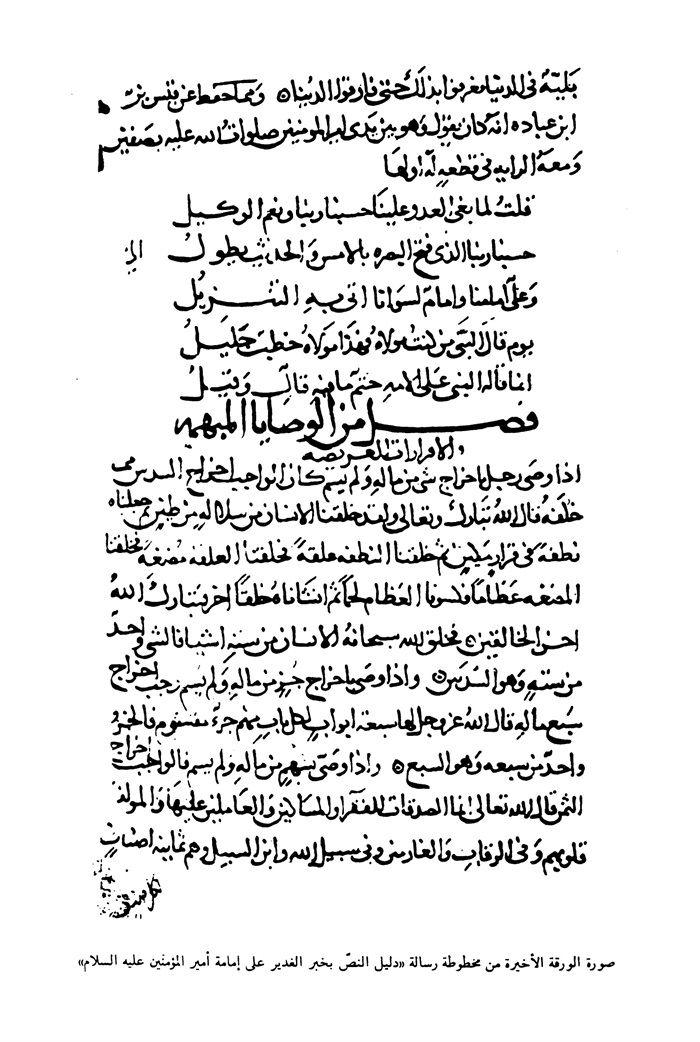 بليته في الدنيا مغرمين بذلك حتى فارقوا الدنيا ٥ ومما حفظ عن قيس بن
ابن عباده انه كان يقول وهو بين يدى امير المومنين صلوات الله عليه بصفين
ومعه الرايه فى قطعه له اولها
قلت لما بغى العدو علينا حسبنا ربنا ونعم الوكيل
حسبنا ربنا الذى فتح البصره بالامس والحديث يطول
وعلى امامنا وامام لسوانا اتى به التنزيل
يوم قال النبى من كنت مولاه فهذا مولاه خطب جليل
انما قاله النبى على الامه حتم ما فيه قال وقيل
فصل من الوصايا المبهمه
والاقرارات العويصه
اذا وصى رجل باخراج شى من ماله ولم يسم كان الواجب اخراج السدس مما
خلفه قال الله تبارك وتعالى ولقد خلقنا الانسان من سلاله من طين ثم جعلناه
نطفة فى قرار مكين ثم خلقنا النطفه علقة فخلقنا العلقه مضغة فخلقنا
المضغه عظاما فكسونا العظام لحما ثم انشاناه خلقا اخر فتبارك الله
احسن الخالقين ٥ فخلق الله سبحانه الانسان من سته اشيا فالشى واحد
من ستة وهو السدس ٥ واذا وصى باخراج جزء من ماله ولم يسم وجب اخراج
سبع ماله قال الله عز وجل لها سبعة ابواب لكل باب منهم جزء مقسوم فالجزو
واحد من سبعه وهو السبع ٥ واذا وصى بسهم من ماله ولم يسم فالواجب اخراج
الثمن قال الله تعالى انما الصدقات للفقرا والمساكين والعاملين عليها والمولفة
قلوبهم وفى الرقاب والغارمين وفى سبيل الله وابن السبيل وهم ثمانيه اصناف
صورة الورقة الأخيرة من مخطوطة رسالة «دليل النصّ بخبر الغدير على إمامة أمير المؤمنين عليه السلام»